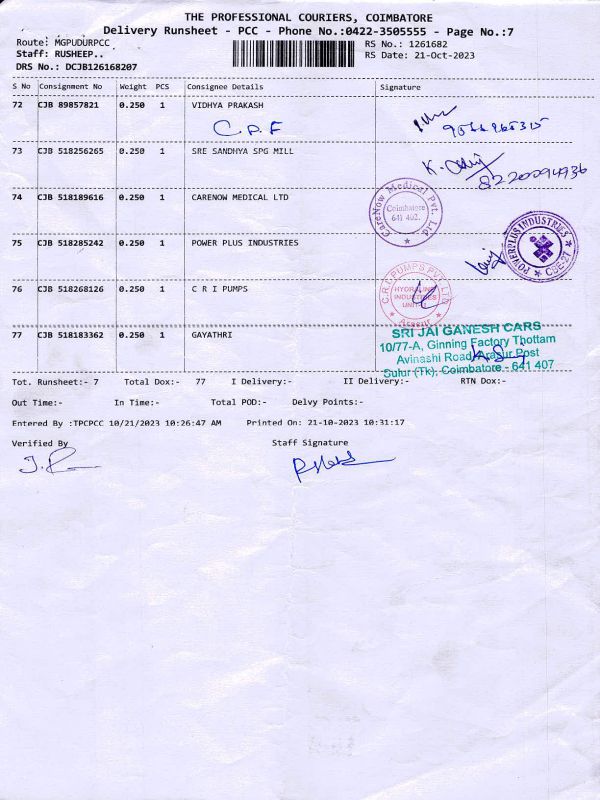 THE PROFESSIONAL COURIERS, COIMBATORE
Delivery Runsheet - PCC - Phone No.:0422-3505555 - Page No.:7
Route: MGPUDURPCC
RS No.: 1261682
Staff: RUSHEEP..
RS Date: 21-Oct-2023
DRS No.: DCJB126168207
S No Consignment No Weight PCS Consignee Details Signature
72 CJB 89857821 0.250 1 VIDHYA PRAKASH
C.P.F
73 CJB 518256265 0.250 1 SRE SANDHYA SPG MILL
K.
8220094936
74 CJB 518189616 0.250 1 CARENOW MEDICAL LTD
CareNow Medical Pvt. Ltd
Coimbatore
641 402.
75 CJB 518285242 0.250 1 POWER PLUS INDUSTRIES
POWERPLUS INDUSTRIES
CBE-27
76 CJB 518268126 0.250 1 C R I PUMPS
C.R.I. PUMPS PVT. LTD
HYDRAULINE
INDUSTRIES
Arasur
77 CJB 518183362 0.250 1 GAYATHRI
SRI JAI GANESH CARS
10/77-A, Ginning Factory Thottam
Avinashi Road, Arasur Post
Sulur (Tk), Coimbatore - 641 407
Tot. Runsheet:- 7 Total Dox:- 77 I Delivery:- II Delivery:- RTN Dox:-
Out Time:- In Time:- Total POD:- Delvy Points:-
Entered By :TPCPCC 10/21/2023 10:26:47 AM Printed On: 21-10-2023 10:31:17
Verified By Staff Signature